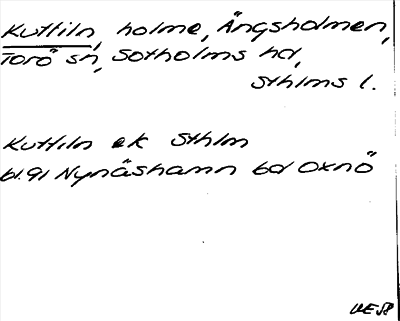 Kuttiln, holme, Ängsholmen,
Torö sn, Sotholms hd,
Sthlms l.
Kuttiln ek Sthlm
bl. 91 Nynäshamn bd Oxnö